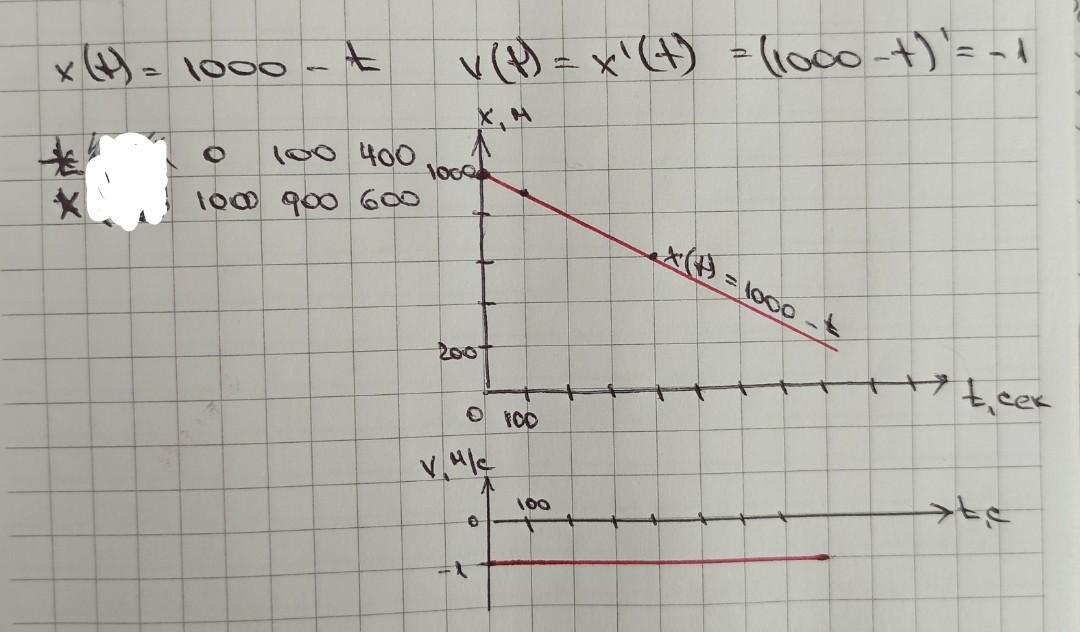 x(t) = 1000 - t v(t) = x'(t) = (1000 - t)' = -1
x, м
t 0 100 400
1000
x 1000 900 600
x(t) = 1000 - t
200
0 100
t, сек
v, м/с
100
0
t, с
-1